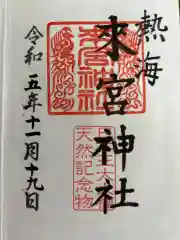 熱海
來宮神社
令和五年十一月十九日
來宮神社
天然記念物
大